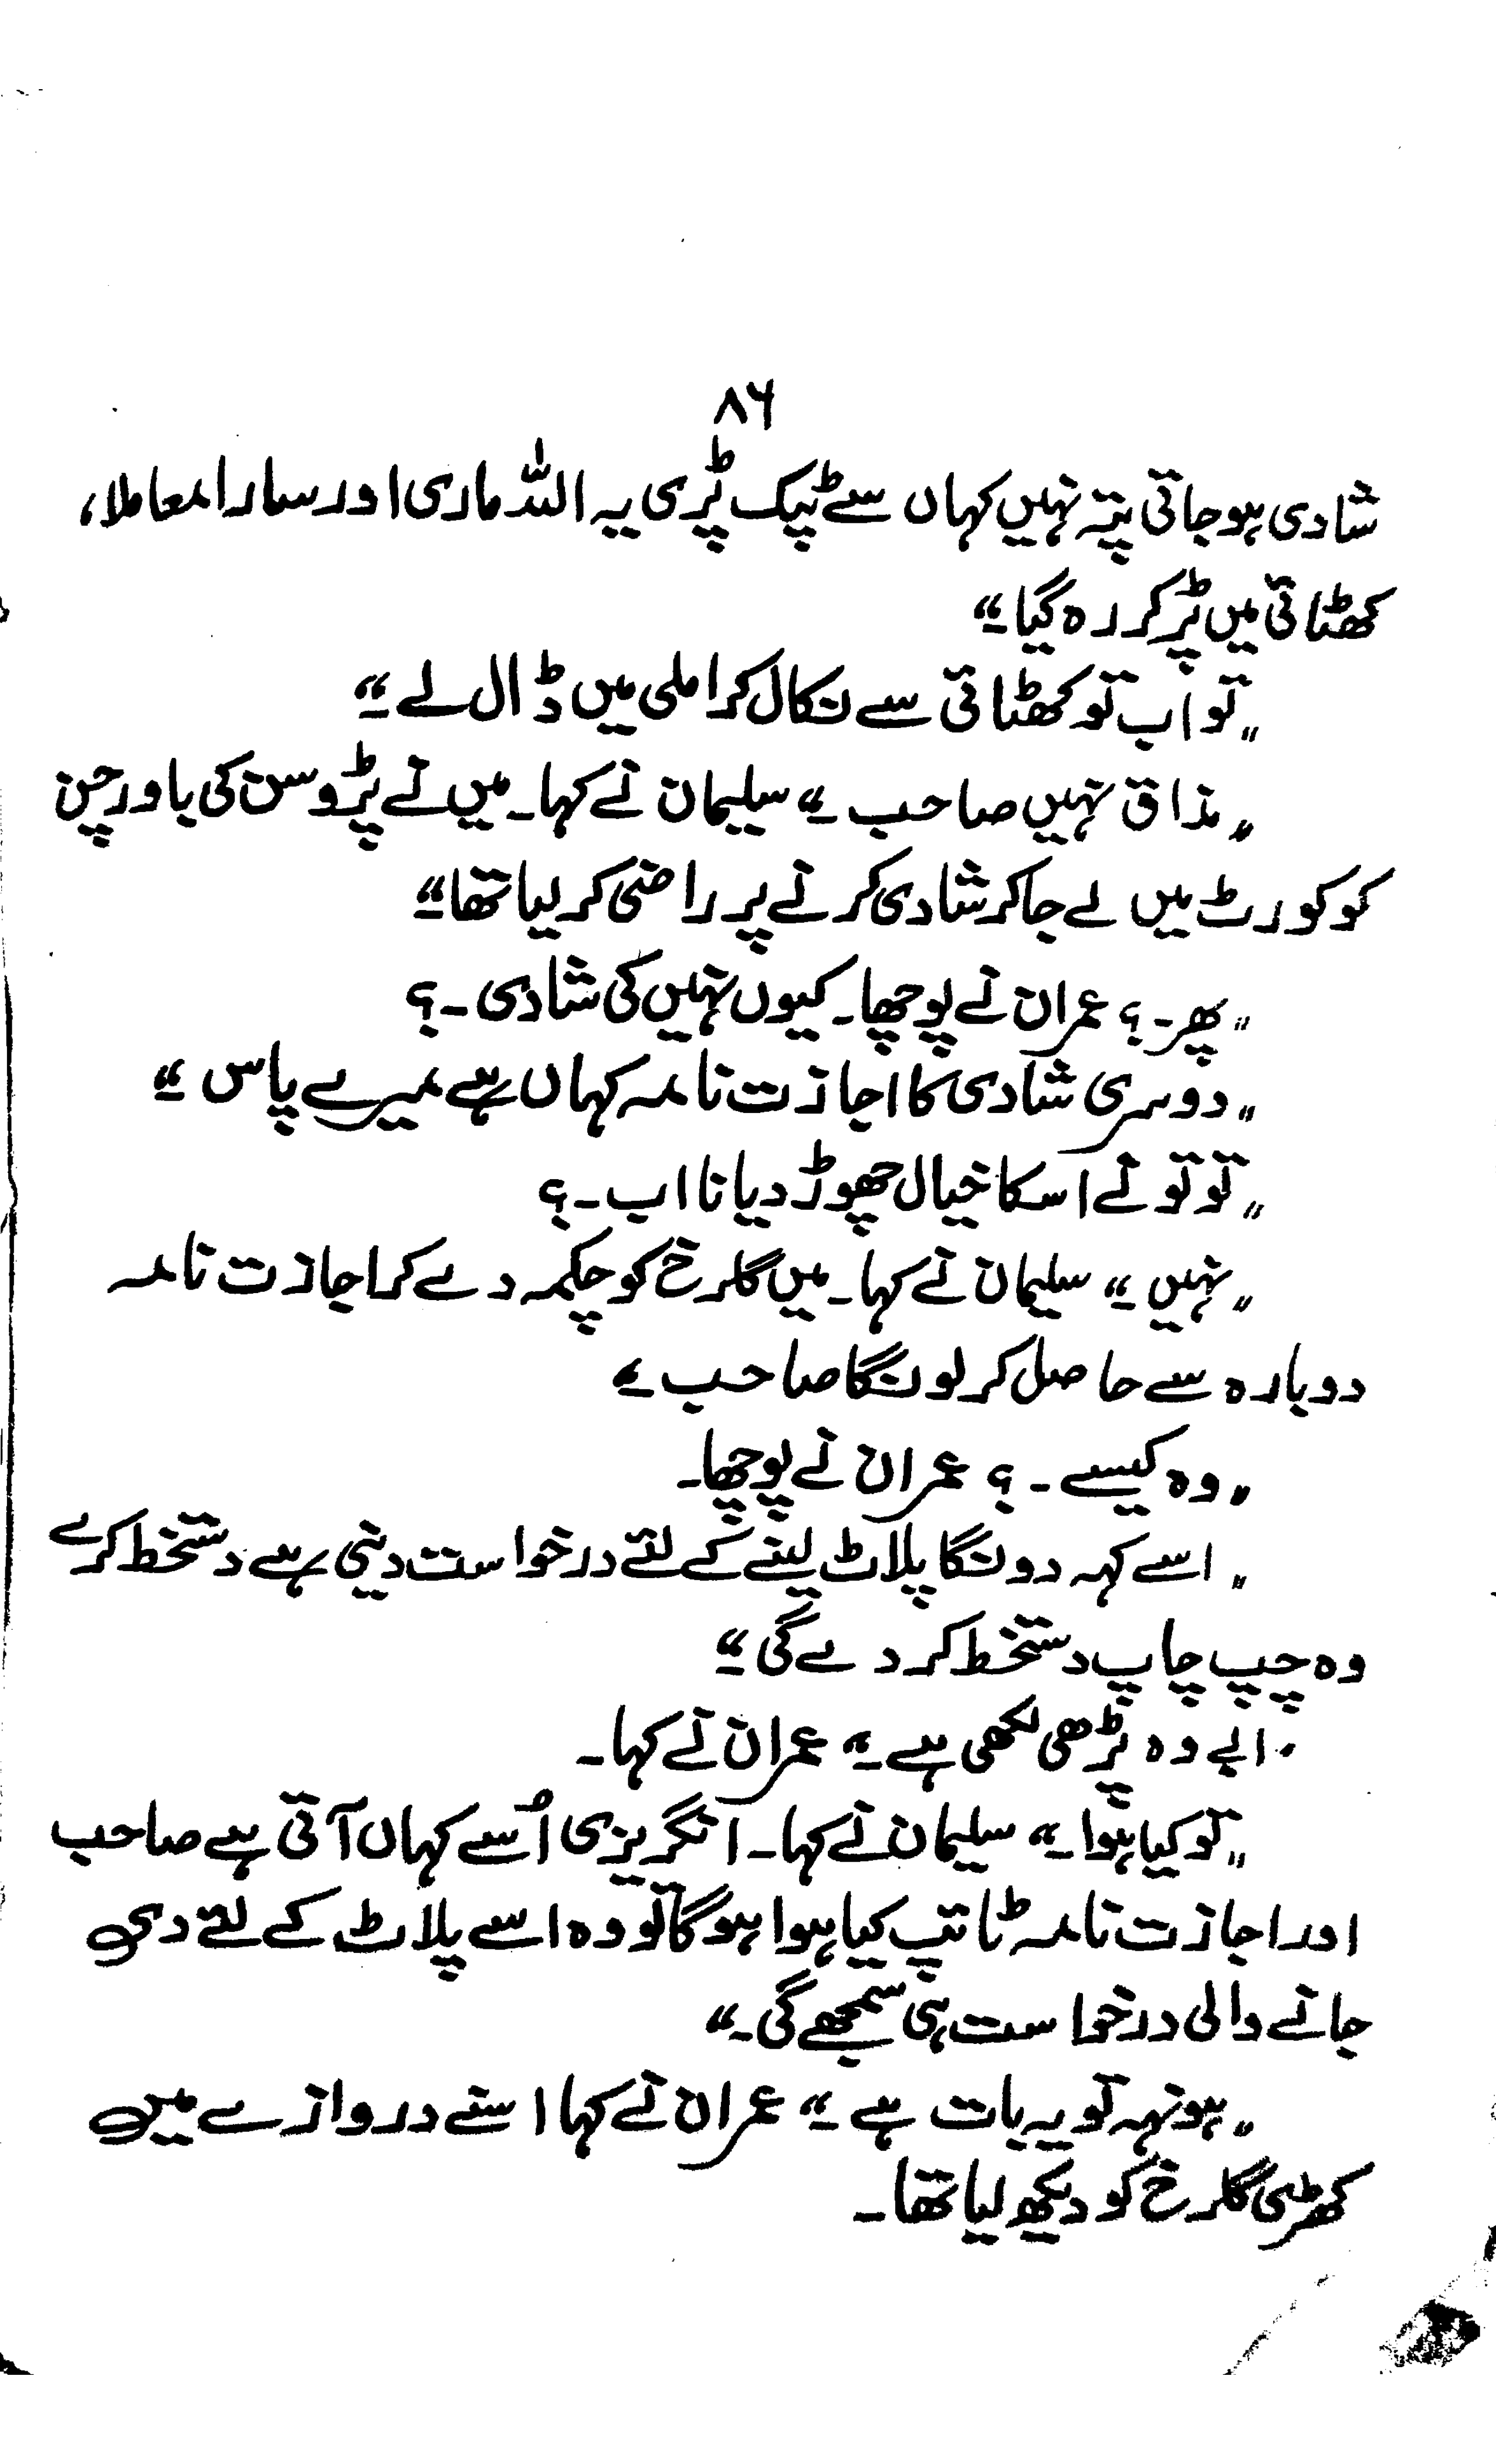 ۸۶
شادی ہو جاتی پتہ نہیں کہاں سے ٹپک پڑی یہ اللہ ماری اور سارا معاملا،
کھٹائی میں پڑ کر رہ گیا۔"
"تو اب تو کھٹائی سے نکال کر املی میں ڈال لے۔"
"مذاق نہیں صاحب۔" سلیمان نے کہا۔ میں نے پڑوسن کی باورچن
کو کورٹ میں لے جا کر شادی کرنے پر راضی کر لیا تھا۔"
"پھر۔؟ عمران نے پوچھا۔ کیوں نہیں کی شادی۔؟
"دوسری شادی کا اجازت نامہ کہاں ہے میرے پاس۔"
"تو تو نے اسکا خیال چھوڑ دیا نا اب۔؟
"نہیں۔" سلیمان نے کہا۔ میں گلرخ کو چکمہ دے کر اجازت نامہ
دوبارہ سے حاصل کر لونگا صاحب۔"
"وہ کیسے۔؟ عمران نے پوچھا۔
"اسے کہہ دونگا پلاٹ لینے کے لئے درخواست دینی ہے دستخط کر دے
وہ چپ چاپ دستخط کر دے گی۔"
"ابے وہ پڑھی لکھی ہے۔" عمران نے کہا۔
"تو کیا ہوا۔" سلیمان نے کہا۔ انگریزی اُسے کہاں آتی ہے صاحب
اور اجازت نامہ ٹائپ کیا ہوا ہو گا تو وہ اسے پلاٹ کے لئے دی
جانے والی درخواست ہی سمجھے گی۔"
"ہونہہ تو یہ بات ہے۔" عمران نے کہا اسنے دروازے میں
کھڑی گلرخ کو دیکھ لیا تھا۔